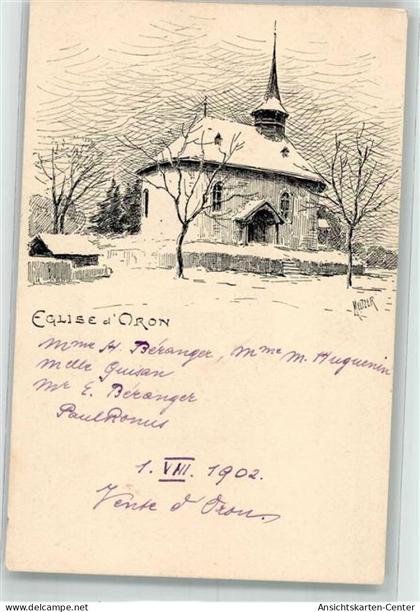 METZER
EGLISE d'ORON
Mme H. Béranger, Mme M. Huguenin
Melle Guisan
Mr E. Béranger
Paul Ronus
1. VIII. 1902.
Vente d'Oron.
www.ansichtskarten-center.de
Ansichtskarten-Center